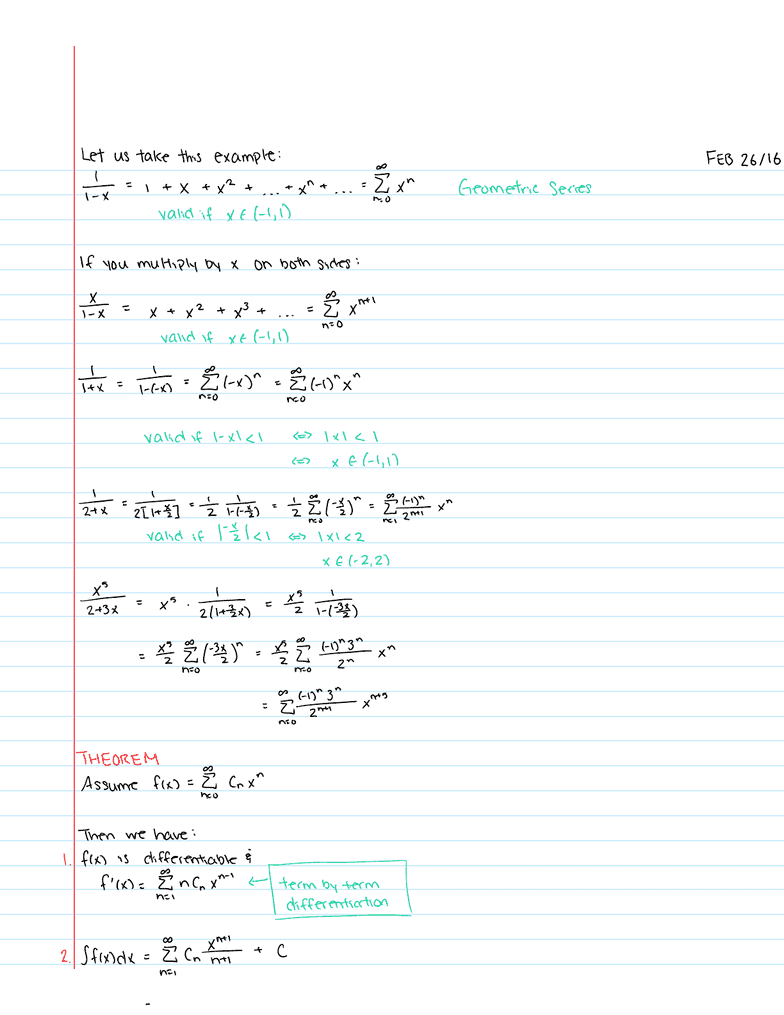 Let us take this example:
FEB 26/16
1/(1-x) = 1 + x + x² + ... + xⁿ + ... = ∞Σn=0 xⁿ Geometric Series
valid if x ∈ (-1,1)
If you multiply by x on both sides:
x/(1-x) = x + x² + x³ + ... = ∞Σn=0 xⁿ⁺¹
valid if x ∈ (-1,1)
1/(1+x) = 1/(1-(-x)) = ∞Σn=0 (-x)ⁿ = ∞Σn=0 (-1)ⁿxⁿ
valid if |-x| < 1 ⇔ |x| < 1
⇔ x ∈ (-1,1)
1/(2+x) = 1/(2[1+x/2]) = 1/2 1/(1-(-x/2)) = 1/2 ∞Σn=0 (-x/2)ⁿ = ∞Σn=1 (-1)ⁿ/2ⁿ⁺¹ xⁿ
valid if |-x/2| < 1 ⇔ |x| < 2
x ∈ (-2,2)
x⁵/(2+3x) = x⁵ · 1/(2(1+3/2x)) = x⁵/2 1/(1-(-3x/2))
= x⁵/2 ∞Σn=0 (-3x/2)ⁿ = x⁵/2 ∞Σn=0 (-1)ⁿ3ⁿ/2ⁿ xⁿ
= ∞Σn=0 (-1)ⁿ3ⁿ/2ⁿ⁺¹ xⁿ⁺⁵
THEOREM
Assume f(x) = ∞Σn=0 Cₙxⁿ
Then we have:
1. f(x) is differentiable &
f'(x) = ∞Σn=1 nCₙxⁿ⁻¹ ← term by term
differentiation
2. ∫f(x)dx = ∞Σn=1 Cₙ xⁿ⁺¹/(n+1) + C